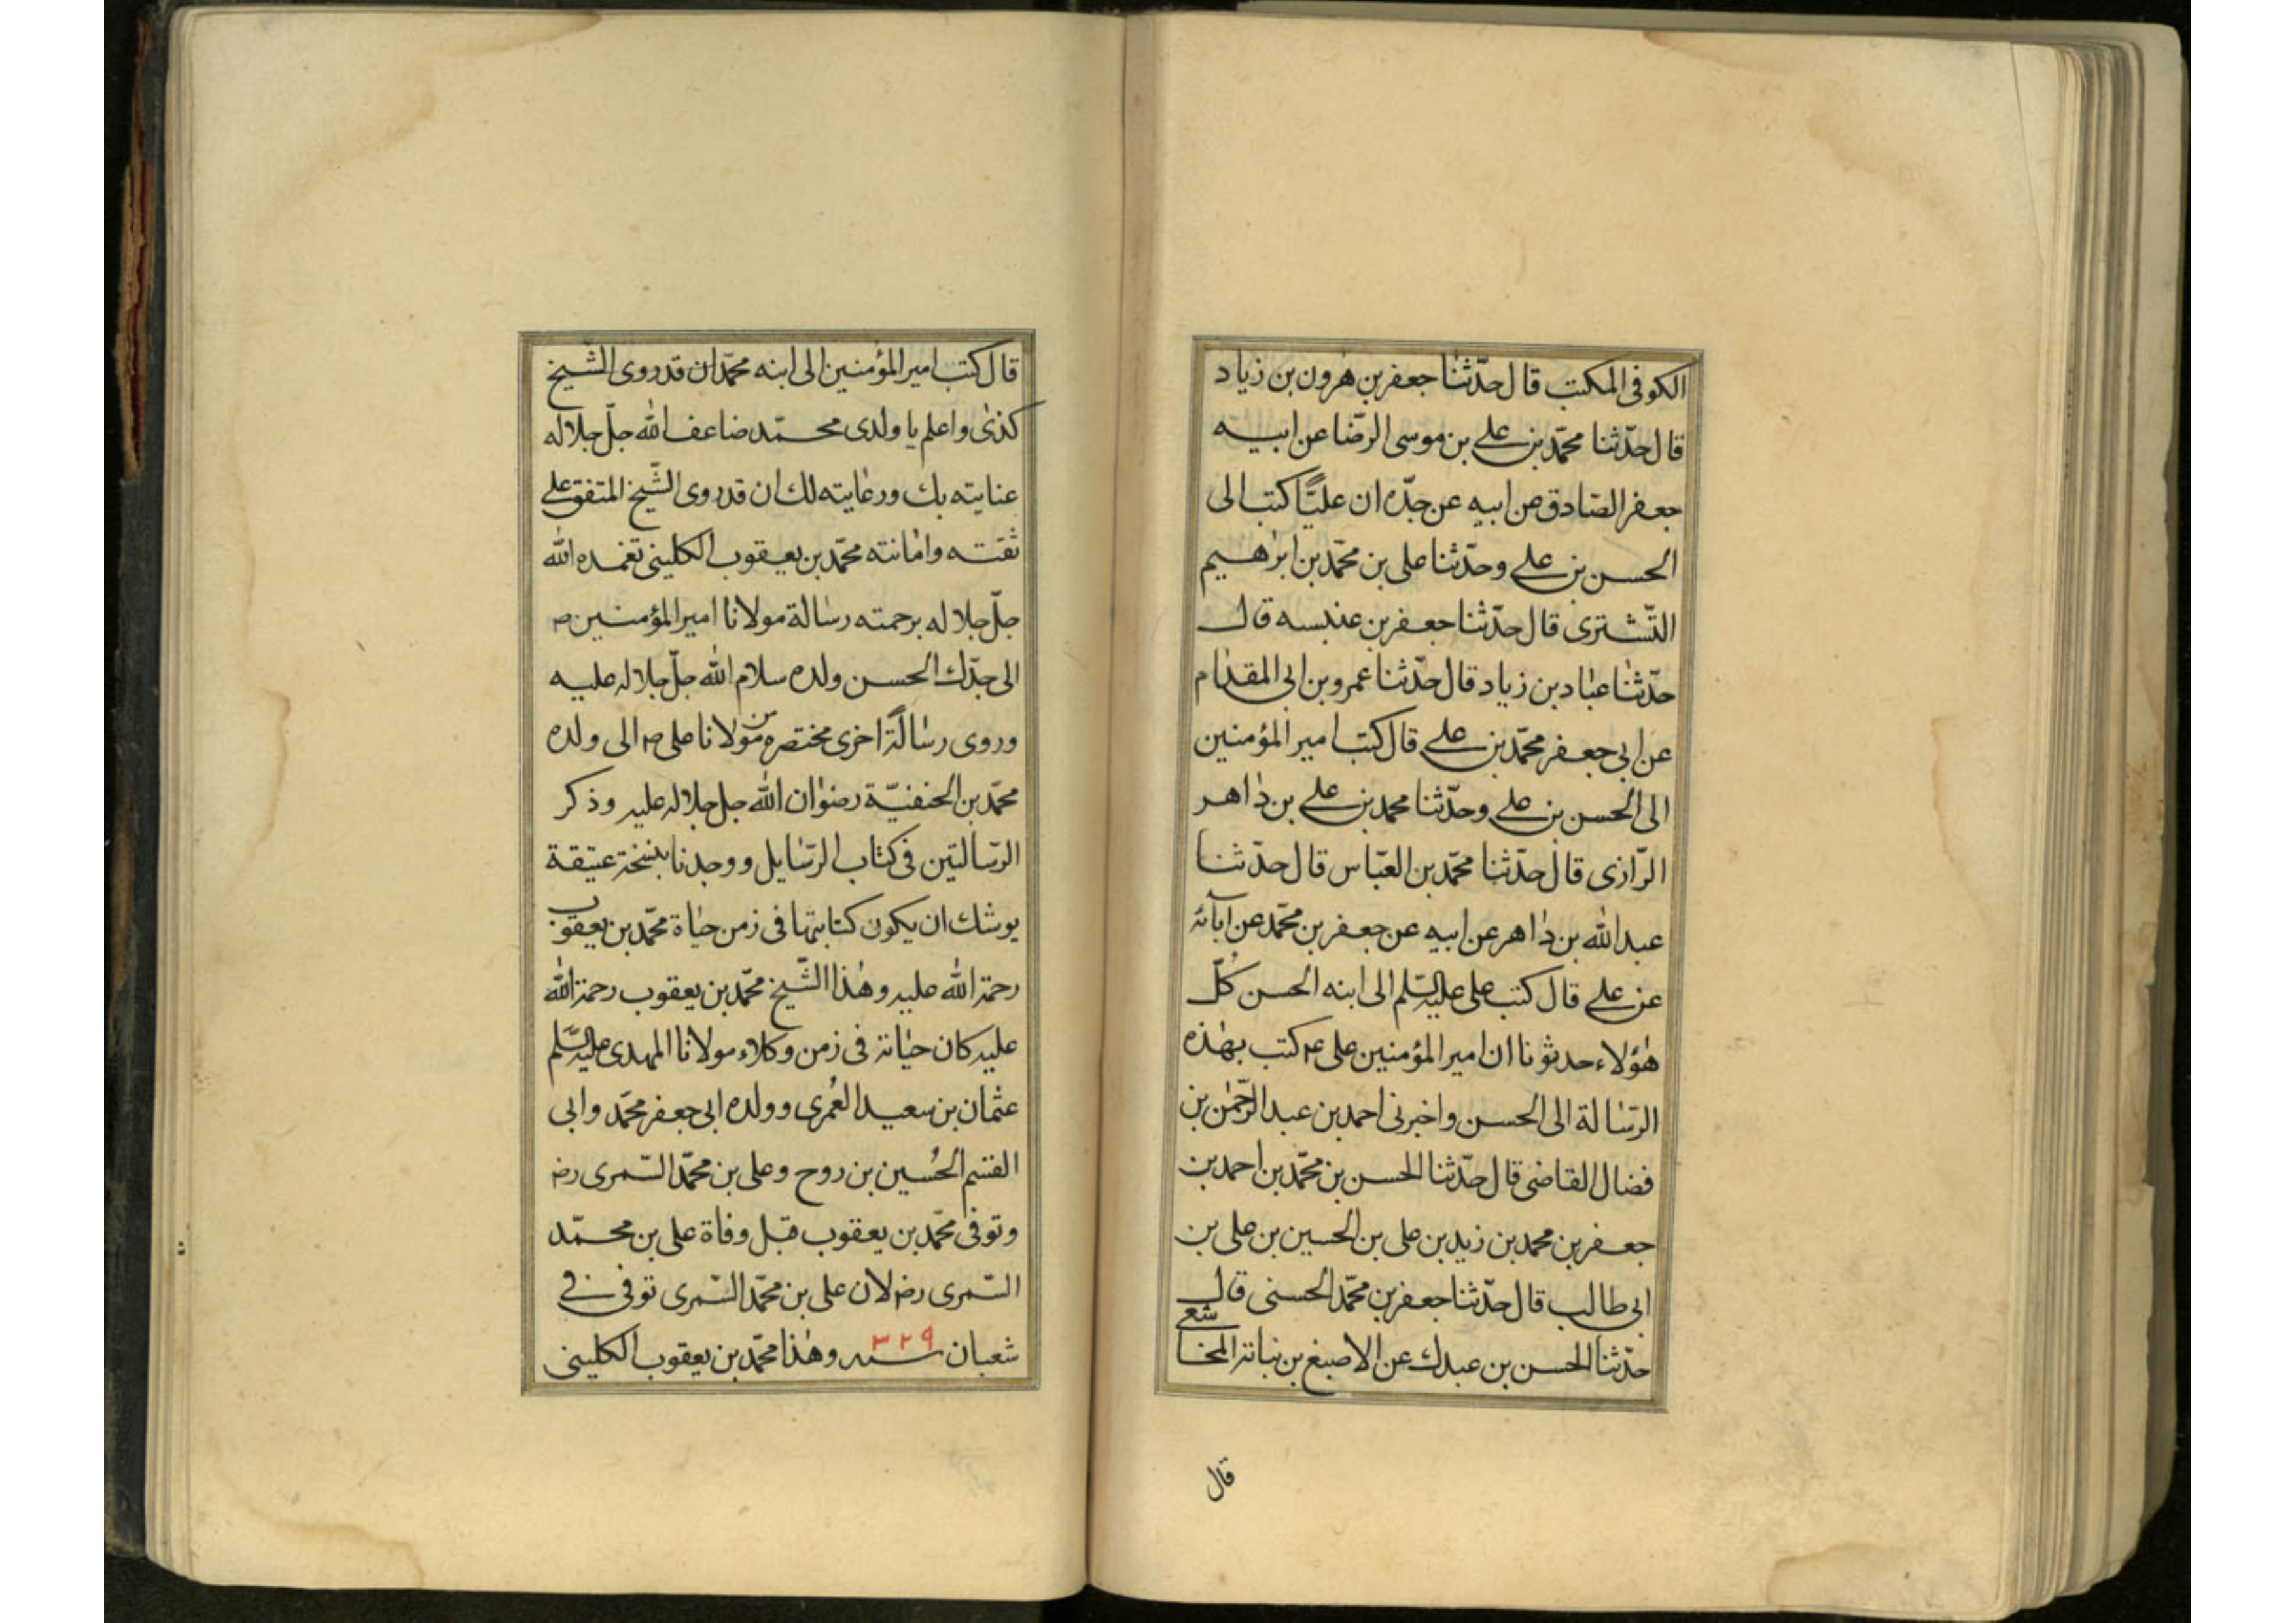 الكوفى المكتب قال حدّثنا جعفر بن هرون بن زياد
قال حدّثنا محمّد بن على بن موسى الرّضا عن ابيه
جعفر الصّادق عن ابيه عن جدّه ان عليًّا كتب الى
الحسن بن على وحدّثنا على بن محمّد بن ابرٰهيم
التّشترى قال حدّثنا جعفر بن عنبسه قال
حدّثنا عباد بن زياد قال حدّثنا عمرو بن ابى المقدام
عن ابى جعفر محمّد بن على قال كتب امير المؤمنين
الى الحسن بن على وحدّثنا محمد بن على بن ذاهر
الرّازى قال حدّثنا محمّد بن العبّاس قال حدّثنا
عبد الله بن ذاهر عن ابيه عن جعفر بن محمّد عن آبائه
عن على قال كتب على عليه السّلم الى ابنه الحسن كُلّ
هٰؤلاء حدثونا ان امير المؤمنين على ع‍ كتب بهٰذه
الرّسالة الى الحسن واخبرنى احمد بن عبد الرّحمٰن بن
فضال القاضى قال حدّثنا الحسن بن محمّد بن احمد بن
جعفر بن محمد بن زيد بن على بن الحسين بن على بن
ابى طالب قال حدّثنا جعفر بن محمّد الحسنى قال
حدّثنا الحسن بن عبدك عن الاصبغ بن نباتة المخاشعى
قال
قال كتب امير المؤمنين الى ابنه محمّد ان قد روى الشّيخ
كذى واعلم يا ولدى محمّد ضاعف الله جلّ جلاله
عنايته بك ورعايته لك ان قد روى الشّيخ المتفق على
ثقته وامانته محمّد بن يعقوب الكلينى تغمده الله
جلّ جلاله برحمته رسالة مولانا امير المؤمنين ص
الى جدّك الحسن ولده سلام الله جلّ جلاله عليه
وروى رسالةً اخرى مختصره من مولانا على ع‍ الى ولده
محمّد بن الحنفيّة رضوان الله جل جلاله عليه وذكر
الرّسالتين فى كتاب الرّسايل ووجدنا بنسخة عتيقة
يوشك ان يكون كتابتها فى زمن حياة محمّد بن يعقوب
رحمة الله عليه وهٰذا الشّيخ محمّد بن يعقوب رحمة الله
عليه كان حياته فى زمن وكلاء مولانا المهدى عليه السّلم
عثمان بن سعيد العُمرى وولده ابى جعفر محمّد وابى
القسم الحُسين بن روح وعلى بن محمّد السّمرى رض
وتوفى محمّد بن يعقوب قبل وفاة على بن محمّد
السّمرى رض لان على بن محمّد السّمرى توفى فى
شعبان سنه ٣٢٩ وهٰذا محمّد بن يعقوب الكلينى